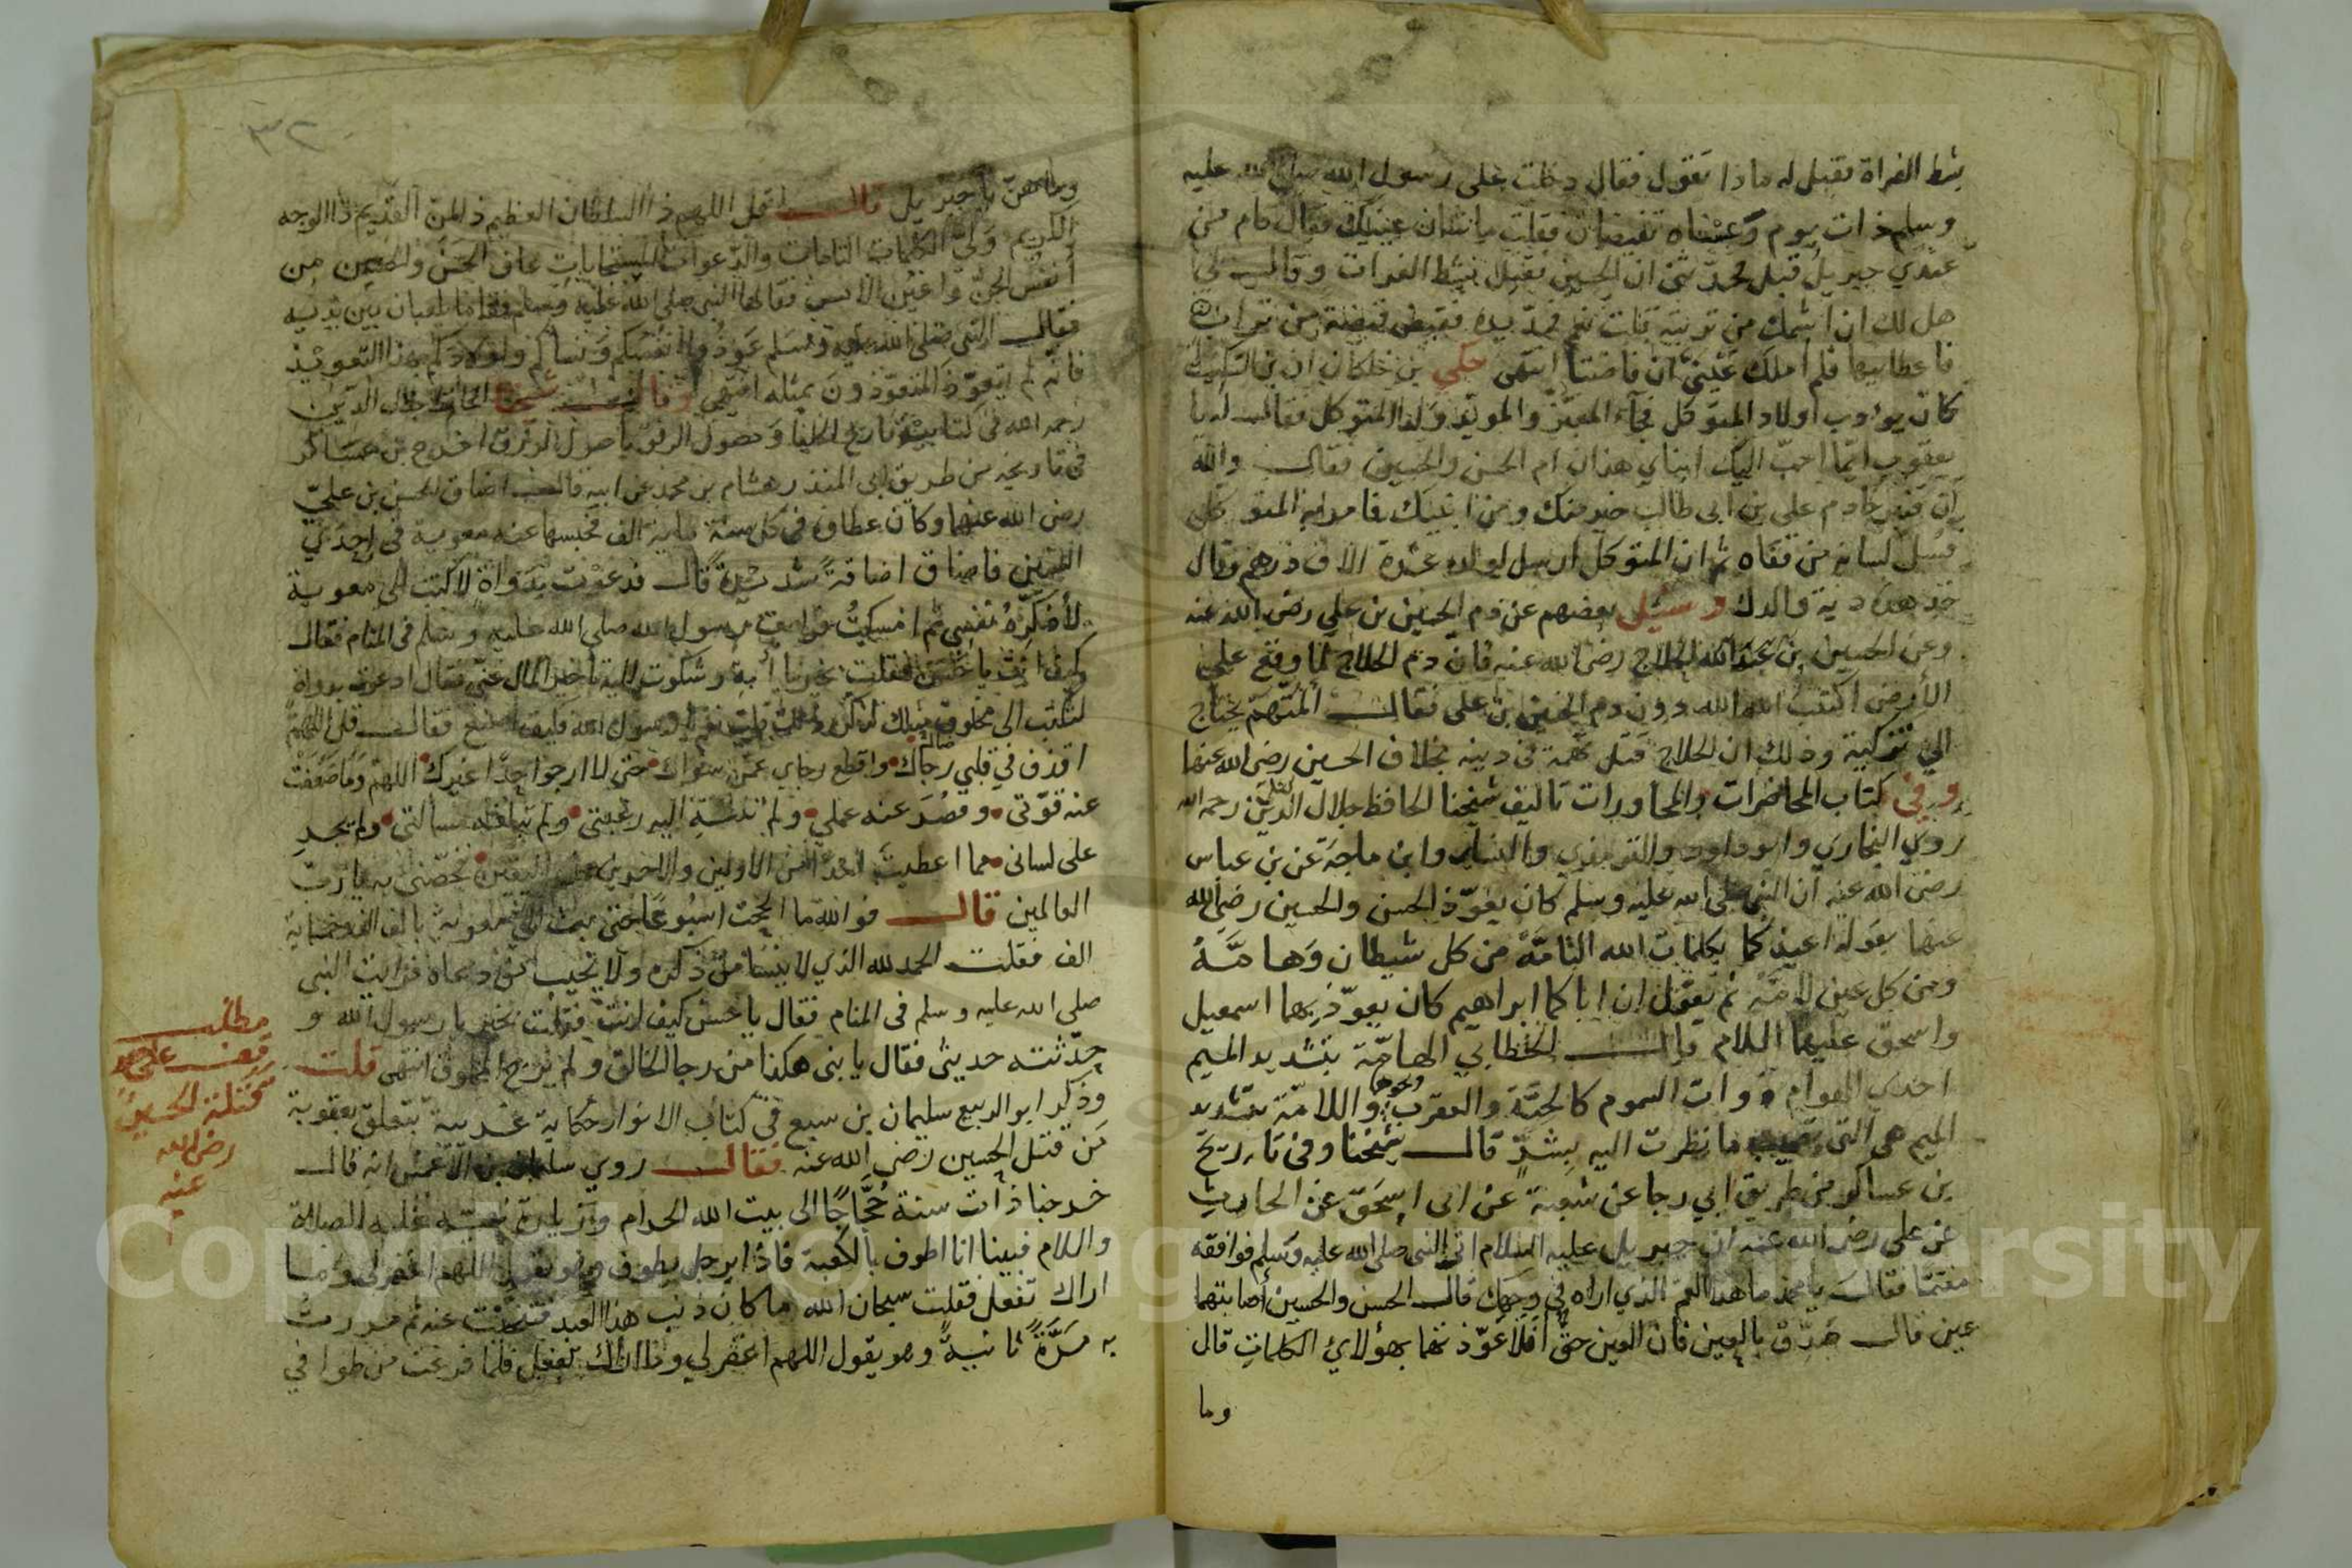 بشط الفراة فقيل له ماذا تقول فقال دخلت على رسول الله صلى الله عليه
وسلم ذات يوم وعيناه تفيضان فقلت ما شان عينيك فقال قام من
عندي جبريل قبل فحدثني ان الحسين يقتل بشط الفرات وقال لي
هل لك ان اشمك من تربته قلت نعم فمد يده فقبض قبضة من تراب
فاعطانيها فلم املك عيني ان فاضتا انتهى حكي بن خلكان ان بن السكيت
كان يؤدب اولاد المتوكل فجاء المعتز والمويد ولدا المتوكل فقال له يا
يعقوب ايما احب اليك ابناي هذان ام الحسن والحسين فقال والله
ان قنبر خادم علي بن ابي طالب خير منك ومن ابنيك فامر ابه المتوكل
فسل لسانه من قفاه ثم ان المتوكل ارسل لولده عشرة الاف درهم وقال
خذ هذه دية والدك وسئل بعضهم عن دم الحسين بن علي رضي الله عنه
وعن الحسين بن الحلاج رضي الله عنه فان دم الحلاج لما وقع على
الأرض اكتتب الله الله دون دم الحسين بن علي فقال المتهم يحتاج
الى تزكية وذلك ان الحلاج قتل تهمة في دينه بخلاف الحسين رضي الله عنها
وفي كتاب المحاضرات والمحاورات تاليف شيخنا الحافظ جلال الدين رحمه الله
روى البخاري وابو داود والترمذي والنساي وابن ماجة عن بن عباس
رضي الله عنه ان النبي صلى الله عليه وسلم كان يعوذ الحسن والحسين رضي الله
عنها بقوله اعيذكما بكلمات الله التامة من كل شيطان وهامة
ومن كل عين لامة ثم يقول ان اباكما ابراهيم كان يعوذ بهما اسمعيل
واسحق عليهما السلام قال الخطابي الهامة بتشديد الميم
احدى الهوام ذوات السموم كالحية والعقرب ونحوها واللامة بتشديد
الميم هي التي تصيب ما نظرت اليه بشر قال شيخنا وفي تاريخ
بن عساكر من طريق ابي رجا عن شعبة عن ابى اسحق عن الحارث
عن علي رضي الله عنه ان جبريل عليه السلام اتى النبي صلى الله عليه وسلم فوافقه
مغتما فقال يا محمد ما هذا الغم الذي اراه في وجهك قال الحسن والحسين أصابتهما
عين قال صدق بالعين فان العين حق أفلا عوذتهما بهؤلاي الكلمات قال
وما
٣٢
وما هن يا جبريل قال قل اللهم ذا السلطان العظيم ذ المن القديم ذا الوجه
الكريم ولي الكلمات التامات والدعوات المستجابات عاف الحسن والحسين من
أنفس الجن واعين الانس فقالها النبي صلى الله عليه وسلم فقاما يلعبان بين يديه
فقال النبي صلى الله عليه وسلم عوذوا انفسكم ونساكم واولادكم بهذا التعويذ
فانه لم يتعوذ المتعوذون بمثله انتهى وقال شيخنا الحافظ جلال الدين
رحمه الله في كتابيه تاريخ الخلفا وحصول الرفق باصول الرزق اخرج بن عساكر
في تاريخه من طريق ابى المنذر هشام بن محمد عن ابيه قال اضاق الحسن بن علي
رضي الله عنهما وكان عطاوه في كل سنة ماية الف فحبسها عنه معوية في احدى
السنين فاضاق اضاقة شديدة قال فدعوت بدواة لاكتب الى معوية
لأذكره نفسي ثم امسكت فرايت رسول الله صلى الله عليه وسلم في المنام فقال
كيف انت يا حسن فقلت بخير يا أبة وشكوت اليه تاخير المال عني فقال ادعوت بدواة
لتكتب الى مخلوق مثلك تذكره قلت نعم يا رسول الله فكيف اصنع فقال قل اللهم
اقذف في قلبي رجاك واقطع رجاي عمن سواك حتى لا ارجوا احدا غيرك اللهم وما ضعفت
عنه قوتي وقصر عنه عملي ولم تنته اليه رغبتي ولم تبلغه مسالتي ولم يجر
على لساني مما اعطيت احدا من الاولين والاخرين من اليقين فخصني به يا رب
العالمين قال فوالله ما الححت اسبوعا حتى بعث الي معوية بالف الف وخمسماية
الف فقلت الحمد لله الذي لا ينسا من ذكره ولا يخيب من دعاه فرايت النبي
صلى الله عليه وسلم في المنام فقال يا حسن كيف انت فقلت بخير يا رسول الله و
حدثته حديثي فقال يا بني هكذا من رجا الخالق ولم يرج المخلوق انتهى قلت
وذكر ابو الربيع سليمان بن سبع في كتاب الانوار حكاية غريبة تتعلق بعقوبة
من قتل الحسين رضي الله عنه فقال روي سليمان بن الاعمش انه قال
خرجنا ذات سنة حجاجا الى بيت الله الحرام وزيارة نبيه عليه الصلاة
والسلام فبينا انا اطوف بالكعبة فاذا برجل يطوف وهو يقول اللهم اغفر لي وما
اراك تفعل فقلت سبحان الله ما كان ذنب هذا العبد فتنحيت عنه ثم مررت
به مرة ثانية وهو يقول اللهم اغفر لي وما اراك تفعل فلما فرغت من طوافي
مطلب
قف على
قتلة الحسين
رضي الله
عنه
Copyright © King Saud University